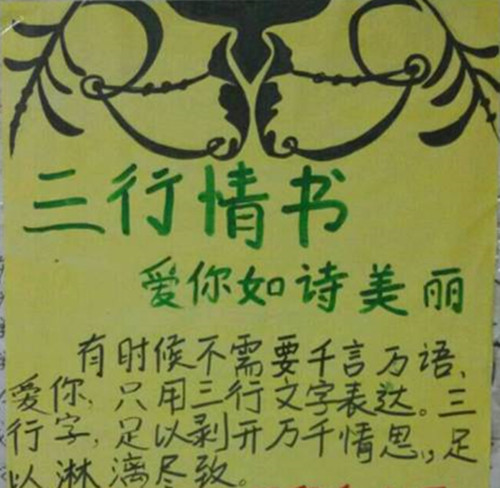 三行情书
爱你如诗美丽
有时候不需要千言万语、
爱你，只用三行文字表达。三
行字，足以剥开万千情思，足
以淋漓尽致。